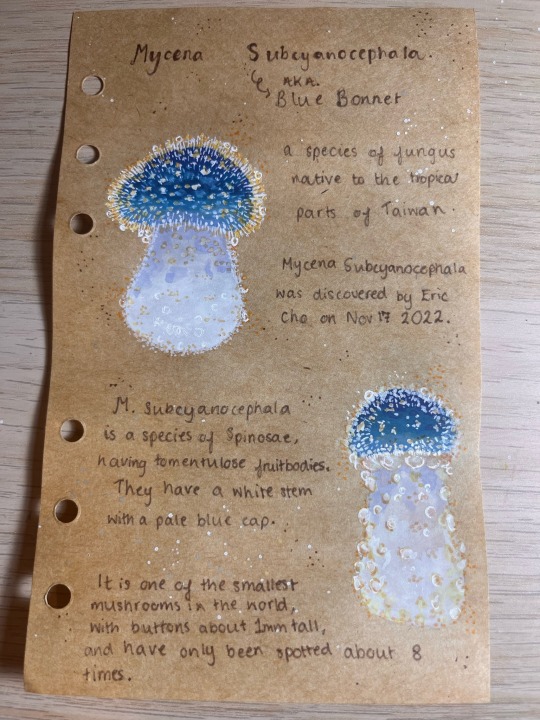 Mycena Subcyanocephala.
AKA.
Blue Bonnet
a species of fungus
native to the tropical
parts of Taiwan.
Mycena Subcyanocephala
was discovered by Eric
Cho on Nov 17 2022.
M. Subcyanocephala
is a species of Spinosae,
having tomentulose fruitbodies.
They have a white stem
with a pale blue cap.
It is one of the smallest
mushrooms in the world,
with buttons about 1mm tall,
and have only been spotted about 8
times.